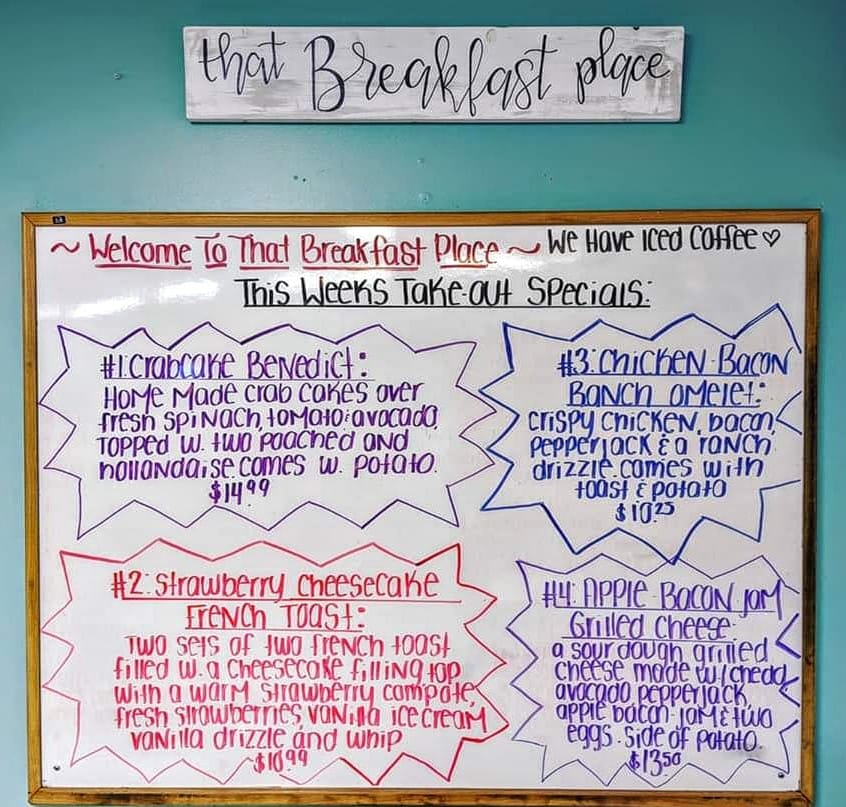 that Breakfast place
~ Welcome To That Breakfast Place ~ We Have Iced Coffee ♡
This Weeks Take-out Specials:
#1: Crabcake Benedict:
Home Made crab cakes over
fresh spinach, tomato & avocado,
TOPPED W. TWO POACHED AND
hollandaise. comes w. potato.
$14.99
#2: Strawberry cheesecake
French Toast:
Two sets of two french toast
filled w. a cheesecake filling top
with a warm strawberry compote,
fresh strawberries, vanilla ice cream
vanilla drizzle and whip
~$10.99
#3: Chicken Bacon
Ranch Omelet:
crispy chicken, bacon,
pepperjack & a ranch
drizzle. comes with
toast & potato
$10.25
#4: Apple Bacon Jam
Grilled Cheese
a sour dough grilled
cheese made w/ chedd
avocado pepperjack
apple bacon jam & two
eggs. Side of potato.
$13.50